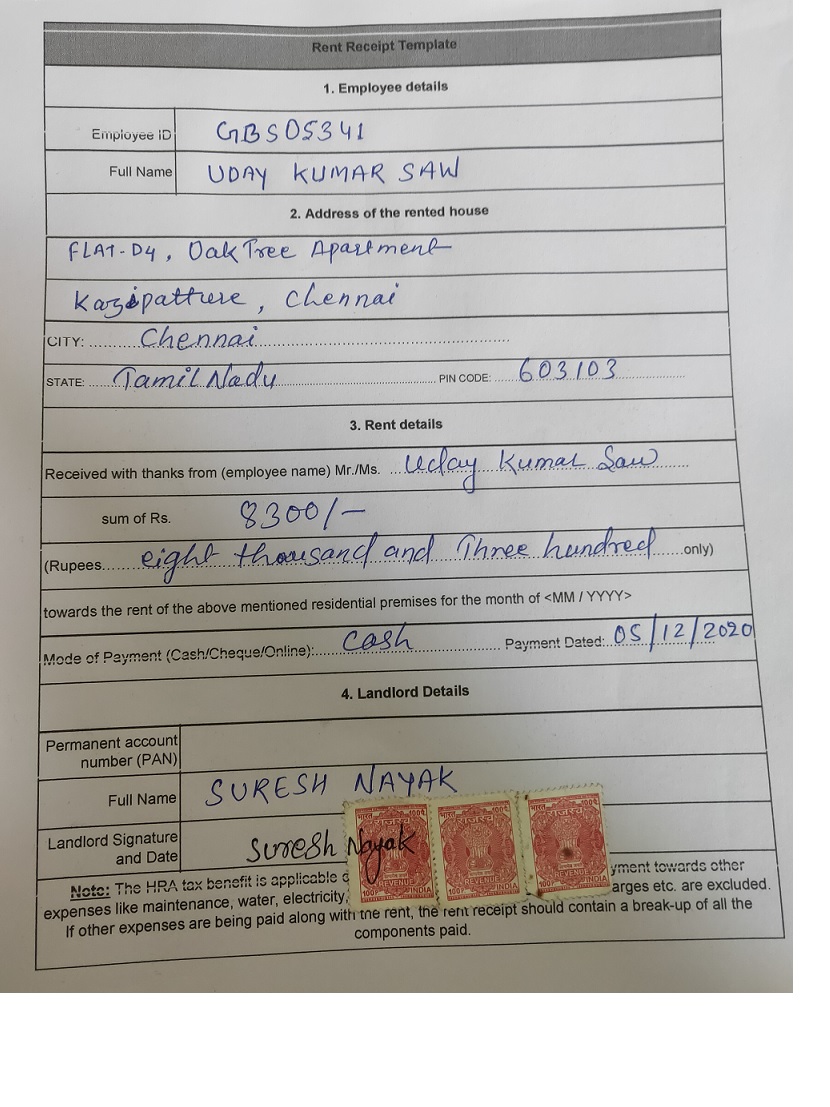 Rent Receipt Template
1. Employee details
Employee ID GBS05341
Full Name UDAY KUMAR SAW
2. Address of the rented house
FLAT-D4, Oak Tree Apartment
Kazipatture, Chennai
CITY: Chennai
STATE: Tamil Nadu PIN CODE: 603103
3. Rent details
Received with thanks from (employee name) Mr./Ms. Uday Kumar Saw
sum of Rs. 8300/-
(Rupees eight thousand and Three hundred only)
towards the rent of the above mentioned residential premises for the month of <MM / YYYY>
Mode of Payment (Cash/Cheque/Online): Cash Payment Dated: 05/12/2020
4. Landlord Details
Permanent account
number (PAN)
Full Name SURESH NAYAK
Landlord Signature
and Date Suresh Nayak
भारत
REVENUE
INDIA
भारत
REVENUE
INDIA
भारत
REVENUE
INDIA
Note: The HRA tax benefit is applicable yment towards other
expenses like maintenance, water, electricity, arges etc. are excluded.
If other expenses are being paid along with the rent, the rent receipt should contain a break-up of all the
components paid.